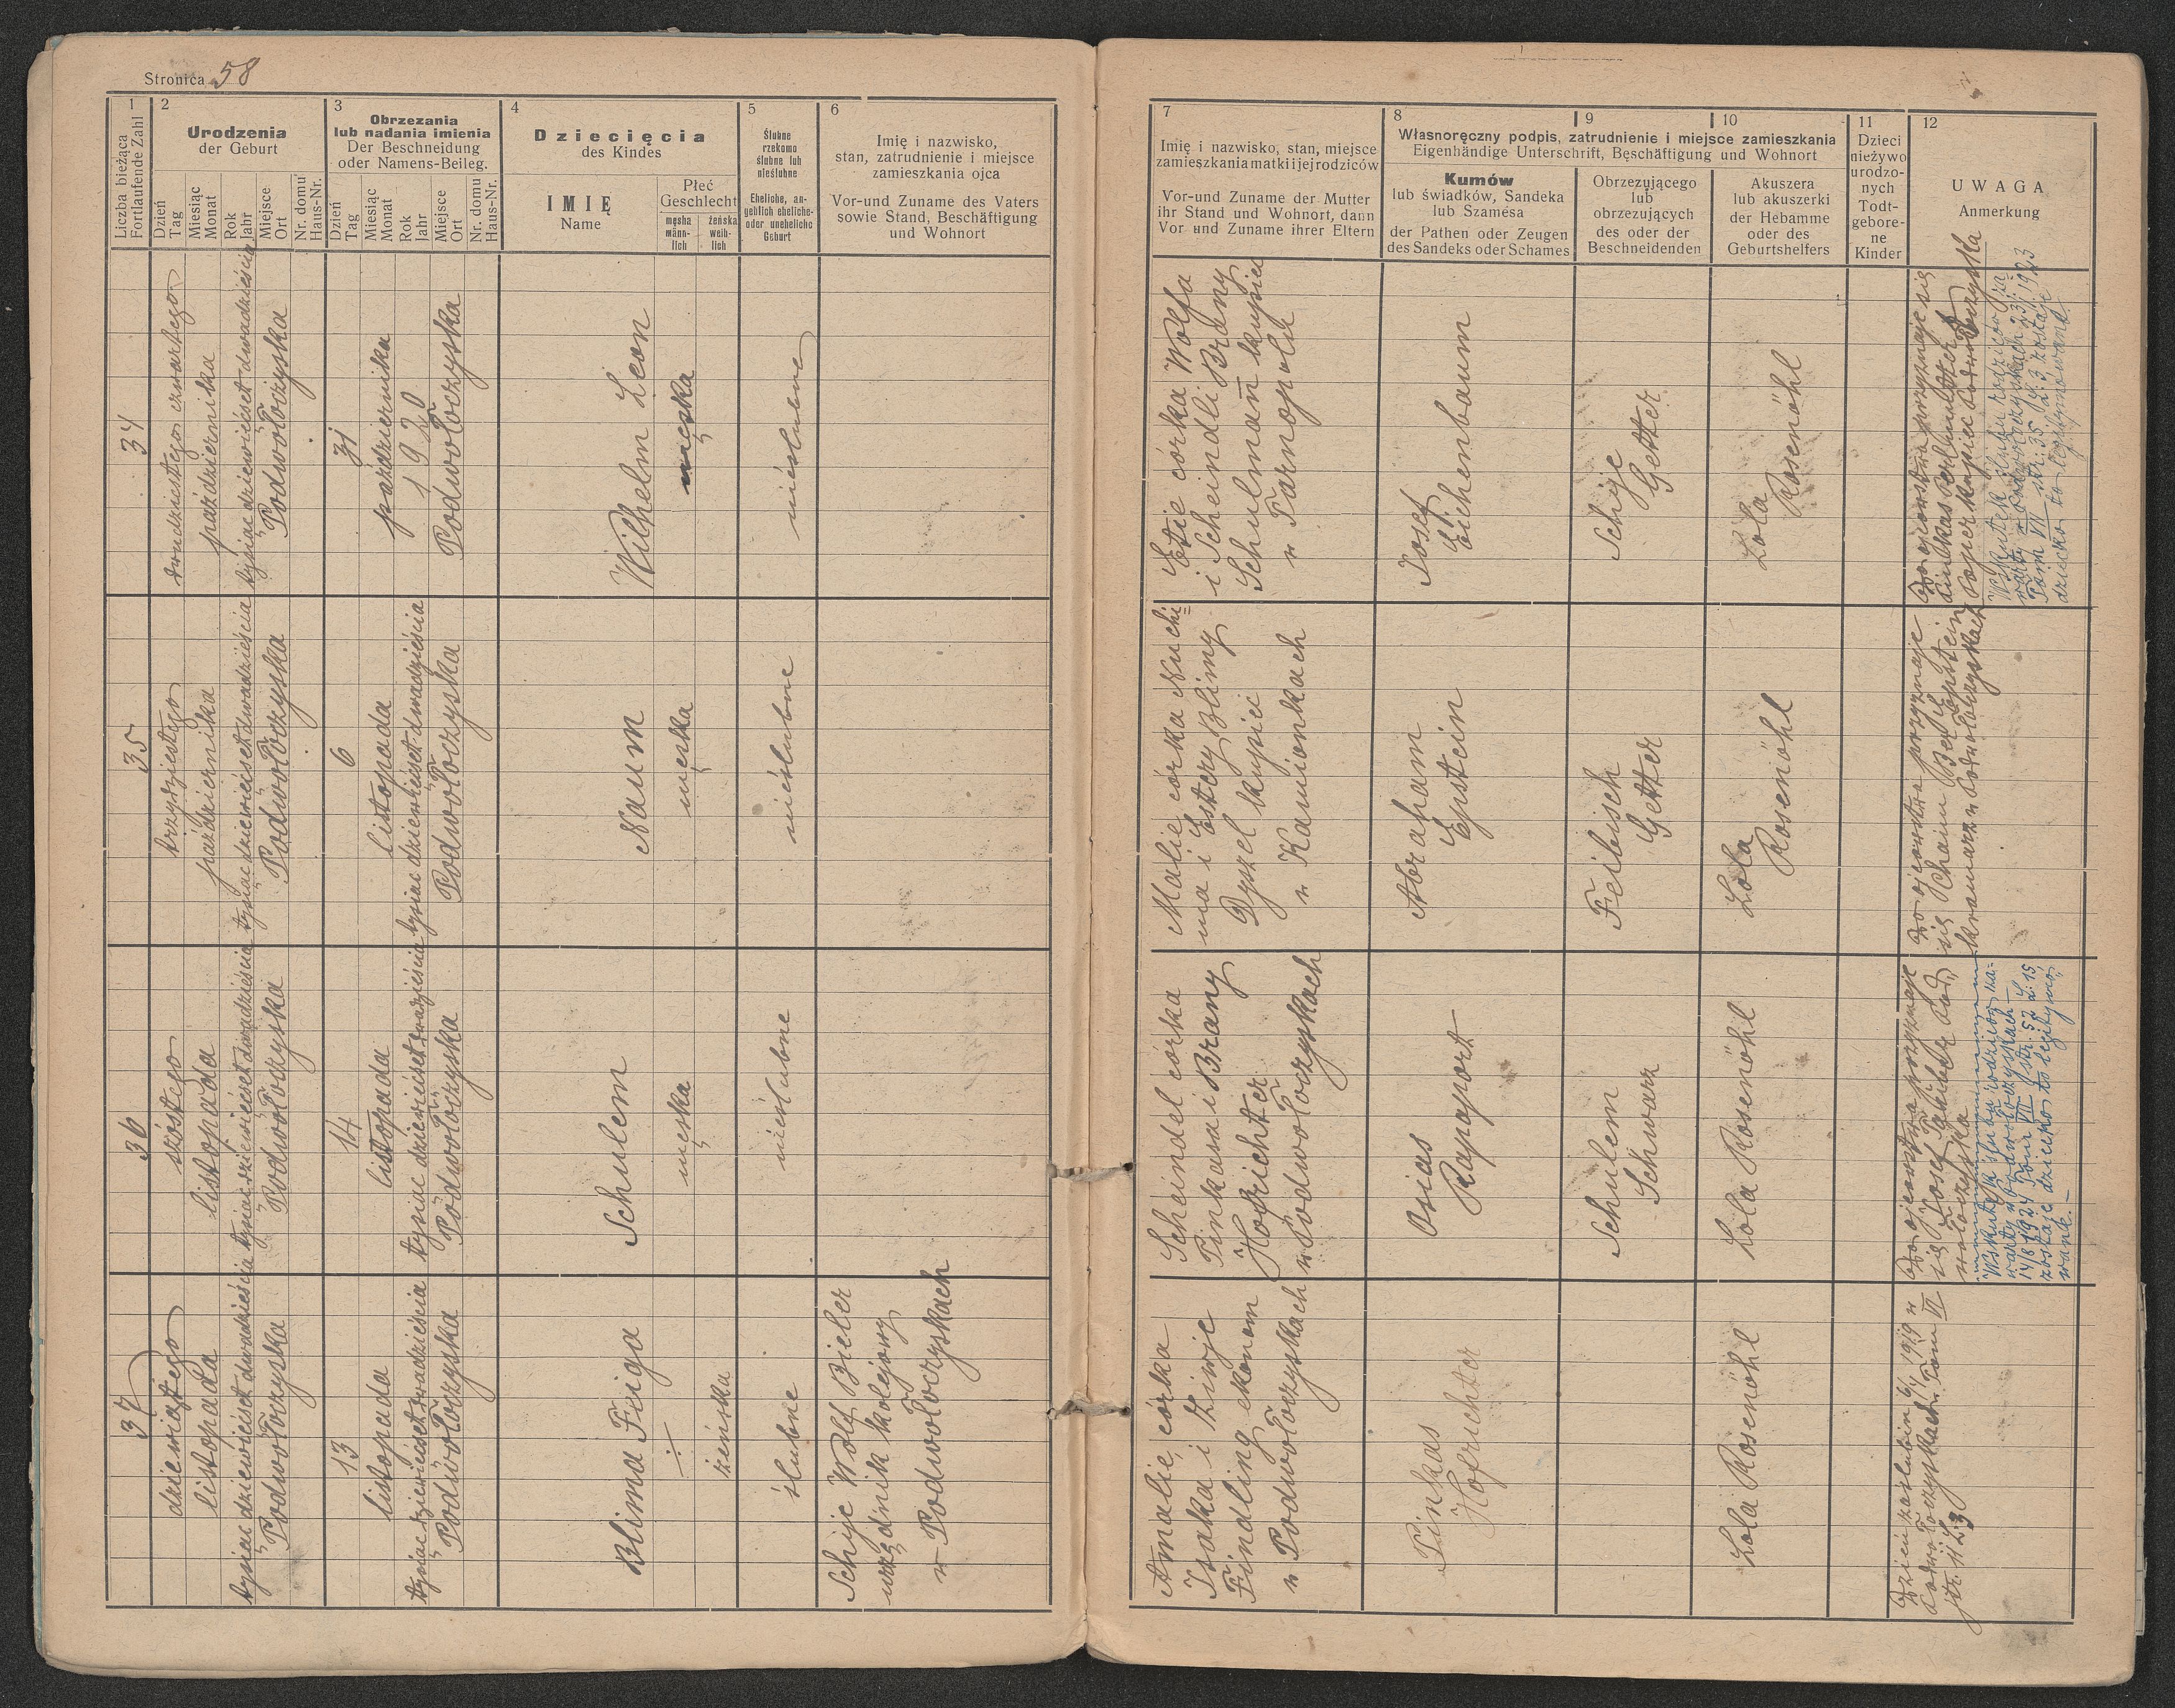 Stronica 58
1
Liczba bieżąca
Fortlaufende Zahl
2
Urodzenia
der Geburt
Dzień
Tag
Miesiąc
Monat
Rok
Jahr
Miejsce
Ort
Nr. domu
Haus-Nr.
3
Obrzezania
lub nadania imienia
Der Beschneidung
oder Namens-Beileg.
Dzień
Tag
Miesiąc
Monat
Rok
Jahr
Miejsce
Ort
Nr. domu
Haus-Nr.
4
Dziecięcia
des Kindes
IMIĘ
Name
Płeć
Geschlecht
męska
männ-
lich
żeńska
weib-
lich
5
Ślubne
rzekomo
ślubne lub
nieślubne
Eheliche, an-
geblich eheliche-
oder uneheliche
Geburt
6
Imię i nazwisko,
stan, zatrudnienie i miejsce
zamieszkania ojca
Vor-und Zuname des Vaters
sowie Stand, Beschäftigung
und Wohnort
7
Imię i nazwisko, stan, miejsce
zamieszkania matki i jej rodziców
Vor-und Zuname der Mutter
ihr Stand und Wohnort, dann
Vor und Zuname ihrer Eltern
8
9
10
Własnoręczny podpis, zatrudnienie i miejsce zamieszkania
Eigenhändige Unterschrift, Beschäftigung und Wohnort
Kumów
lub świadków, Sandeka
lub Szamesa
der Pathen oder Zeugen
des Sandeks oder Schames
Obrzezującego
lub
obrzezujących
des oder der
Beschneidenden
Akuszera
lub akuszerki
der Hebamme
oder des
Geburtshelfers
11
Dzieci
nieżywo
urodzo-
nych
Todt-
gebore-
ne
Kinder
12
UWAGA
Anmerkung
34
dwudziestego czwartego
października
tysiąc dziewięćset dwadzieścia
Podwołoczyska
31
października
1920
Podwołoczyska
Wilhelm Leon
męska
nieślubne
Etie córka Wolfa
i Scheindli Brany
Schulmañ kupiec
w Tarnopolu
Josef
Eichenbaum
Schije
Getter
Lola
Rosenöhl
Do ojcostwa przyznaje się
Wskutek ślubu
Podwołoczyskach 23/ 1923
Tom VII str. 35 L. 3 zostaje
dziecko to legitymowane.
35
trzydziestego
października
tysiąc dziewięćset dwadzieścia
Podwołoczyska
6
listopada
tysiąc dziewięćset dwadzieścia
Podwołoczyska
Naum
męska
nieślubne
Malie córka Nuchi=
ma i Estery Bliny
Dyszel kupiec
w Kamionkach
Abraham
Epstein
Feibisch
Getter
Lola
Rosenöhl
Do ojcostwa przyznaje
się Chaim Ber Epstein
kramarz w Podwołoczyskach
36
szóstego
listopada
tysiąc dziewięćset dwadzieścia
Podwołoczyska
14
listopada
tysiąc dziewięćset dwadzieścia
Podwołoczyska
Schulem
męska
nieślubne
Scheindel córka
Pinkasa i Brany
Hofrichter
w Podwołoczyskach
Osias
Rapaport
Schulem
Schwarz
Lola Rosenöhl
Do ojcostwa przyznaje
się Josef Pod„
wołoczyska
Wskutek ślubu za-
warty w Podwołoczyskach
14/8 1924 Tom VII str. 52 L. 15
zostaje dziecko to legitymo„
wane.
37
dziewiątego
listopada
tysiąc dziewięćset dwadzieścia
Podwołoczyska
13
listopada
tysiąc dziewięćset dwadzieścia
Podwołoczyska
Blima Feiga
żeńska
ślubne
Schije Wolf Bieler
urzędnik kolejowy
w Podwołoczyskach
Amalie córka
Isaka i Ziwje
Findling ekonom
w Podwołoczyskach
Pinkas
Hofrichter
Lola Rosenöhl
Dzień zaślubin 1919 w
Podwołoczyskach Tom VI
str. 11 L. 3